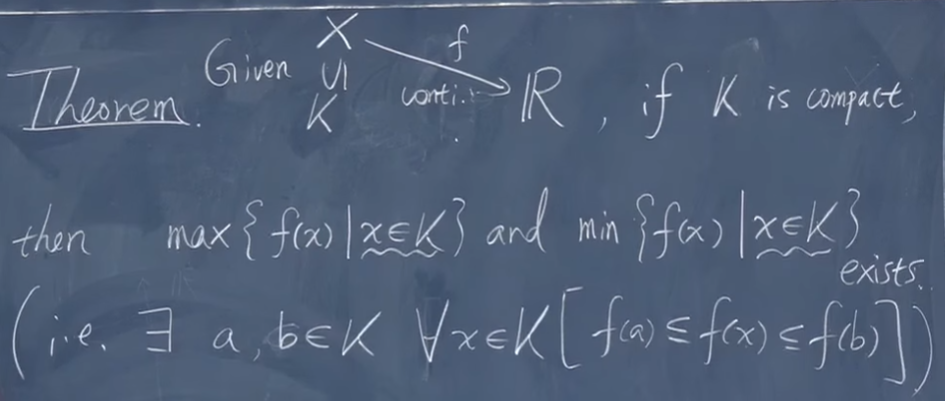 Theorem. Given X ⊇ K f conti. → ℝ, if K is compact,
then max{f(x)|x∈K} and min{f(x)|x∈K} exists.
(i.e. ∃ a, b∈K ∀x∈K[f(a)≤f(x)≤f(b)])